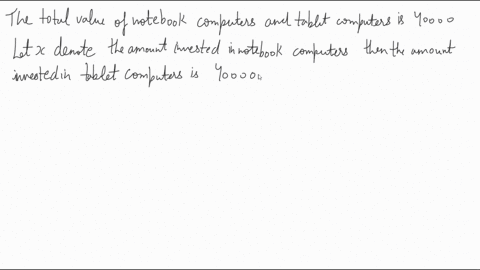 The total value of notebook computers and tablet computers is 40000
Let x denote the amount invested in notebook computers then the amount
invested in tablet computers is 40000